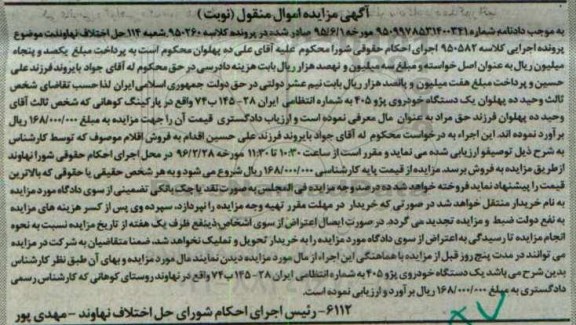 آگهی مزایده اموال منقول (نوبت )
به موجب دادنامه شماره ۹۵۰۹۹۷۸۵۳۱۴۰۰۳۴۱ مورخه ۹۵/۶/۱ صادر شده در پرونده کلاسه ۹۵۰۲۶۰ شعبه ۱۱۴ حل اختلاف نهاوند موضوع
پرونده اجرایی کلاسه ۹۵۰۵۸۲ اجرای احکام حقوقی شورا محکوم علیه آقای علی ده پهلوان محکوم است به پرداخت مبلغ یکصد و پنجاه
میلیون ریال به عنوان اصل خواسته و مبلغ سه میلیون و نهصد هزار ریال بابت هزینه دادرسی در حق محکوم له آقای جواد بایروند فرزند علی
حسین و پرداخت مبلغ هفت میلیون و پانصد هزار ریال بابت نیم عشر دولتی در حق دولت جمهوری اسلامی ایران لذا حسب تقاضای شخص
ثالث وحید ده پهلوان یک دستگاه خودروی پژو ۴۰۵ به شماره انتظامی ایران ۲۸- ۱۴۵ ب ۷۴ واقع در پارکینگ کوهانی که شخص ثالث آقای
وحید ده پهلوان فرزند حق مراد به عنوان مال معرفی نموده است و ارزیاب دادگستری قیمت آن را جهت مزایده به مبلغ ۱۶۸/۰۰۰/۰۰۰ ریال
برآورد نموده اند. این اجراء به درخواست محکوم له آقای جواد بایروند فرزند علی حسین اقدام به فروش اقلام موصوف که توسط کارشناس
به شرح ذیل توصیف و ارزیابی شده می نماید و مقرر است از ساعت ۱۰:۳۰ تا ۱۱:۳۰ مورخه ۹۶/۲/۲۸ در محل اجرای احکام حقوقی شورا نهاوند
از طریق مزایده به فروش برسد. مزایده از قیمت پایه کارشناسی ۱۶۸/۰۰۰/۰۰۰ ریال شروع می شود و به هر شخص حقیقی یا حقوقی که بالاترین
قیمت را پیشنهاد نماید فروخته خواهد شد ده درصد وجه مزایده فی المجلس به صورت نقد یا چک بانکی تضمینی از سوی دادگاه مورد مزایده
به نام خریدار منتقل خواهد شد در صورتی که خریدار در مهلت مقرر تهیه وجه مزایده را نپردازد، سپرده وی پس از کسر هزینه های مزایده
به نفع دولت ضبط و مزایده تجدید می گردد. در صورت ایصال اعتراض از سوی اشخاص ذینفع ظرف یک هفته از تاریخ مزایده نسبت به نحوه
انجام مزایده تا رسیدگی به اعتراض از سوی دادگاه مورد مزایده را به خریدار تحویل و تملیک نخواهد شد، ضمنا متقاضیان به شرکت در مزایده
می توانند در مدت پنج روز قبل از مزایده با هماهنگی این اجراء از مال مورد مزایده دیدن نمایند مال مورد مزایده و بهای آن طبق نظر کارشناس
بدین شرح می باشد یک دستگاه خودروی پژو ۴۰۵ به شماره انتظامی ایران ۲۸- ۱۴۵ ب ۷۴ واقع در نهاوند روستای کوهانی که کارشناس رسمی
دادگستری به مبلغ ۱۶۸/۰۰۰/۰۰۰ ریال برآورد و ارزیابی نموده است.
۶۱۱۲- رئیس اجرای احکام شورای حل اختلاف نهاوند - مهدی پور